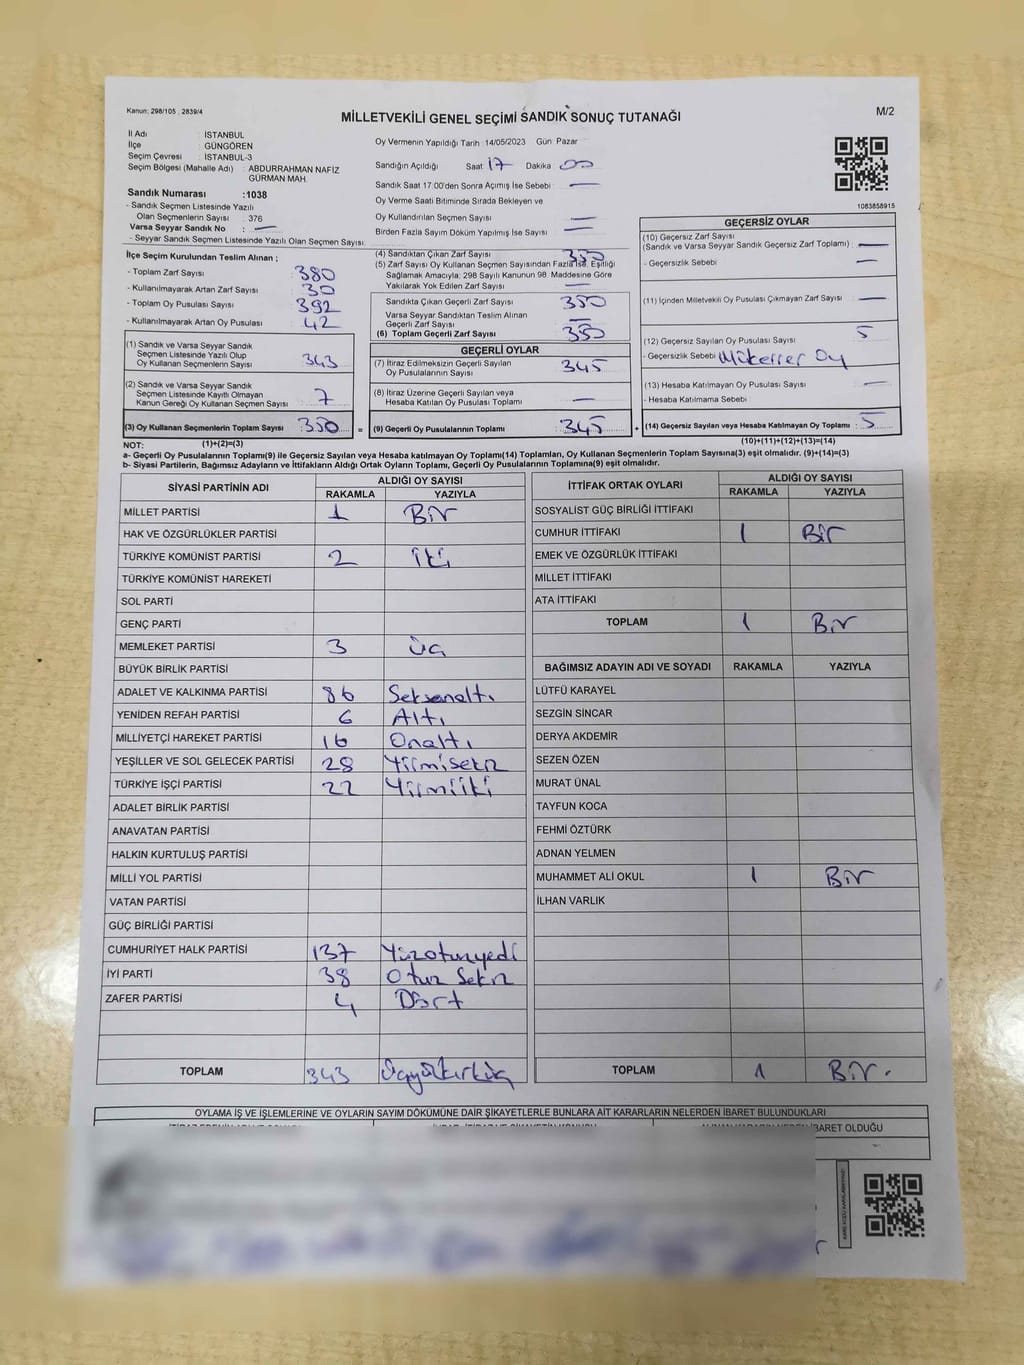 Kanun: 298/105 , 2839/4
M/2
MİLLETVEKİLİ GENEL SEÇİMİ SANDIK SONUÇ TUTANAĞI
İl Adı : İSTANBUL
İlçe : GÜNGÖREN
Seçim Çevresi : İSTANBUL-3
Seçim Bölgesi (Mahalle Adı) : ABDURRAHMAN NAFİZ
GÜRMAN MAH.
Sandık Numarası :1038
- Sandık Seçmen Listesinde Yazılı
Olan Seçmenlerin Sayısı : 376
Varsa Seyyar Sandık No : —
- Seyyar Sandık Seçmen Listesinde Yazılı Olan Seçmen Sayısı:
Oy Vermenin Yapıldığı Tarih 14/05/2023 Gün: Pazar
Sandığın Açıldığı Saat 17 Dakika : 00
Sandık Saat 17:00'den Sonra Açımış İse Sebebi : —
Oy Verme Saati Bitiminde Sırada Bekleyen ve
Oy Kullandırılan Seçmen Sayısı : —
Birden Fazla Sayım Döküm Yapılmış İse Sayısı : —
1083858915
İlçe Seçim Kurulundan Teslim Alınan ;
- Toplam Zarf Sayısı : 380
- Kullanılmayarak Artan Zarf Sayısı : 30
- Toplam Oy Pusulası Sayısı : 392
- Kullanılmayarak Artan Oy Pusulası : 42
(1) Sandık ve Varsa Seyyar Sandık
Seçmen Listesinde Yazılı Olup
Oy Kullanan Seçmenlerin Sayısı : 343
(2) Sandık ve Varsa Seyyar Sandık
Seçmen Listesinde Kayıtlı Olmayan
Kanun Gereği Oy Kullanan Seçmen Sayısı : 7
(3) Oy Kullanan Seçmenlerin Toplam Sayısı : 350
(4) Sandıktan Çıkan Zarf Sayısı : 350
(5) Zarf Sayısı Oy Kullanan Seçmen Sayısından Fazla İse, Eşitliği
Sağlamak Amacıyla; 298 Sayılı Kanunun 98. Maddesine Göre
Yakılarak Yok Edilen Zarf Sayısı : —
Sandıkta Çıkan Geçerli Zarf Sayısı : 350
Varsa Seyyar Sandıktan Teslim Alınan
Geçerli Zarf Sayısı : —
(6) Toplam Geçerli Zarf Sayısı : 350
GEÇERLİ OYLAR
(7) İtiraz Edilmeksizin Geçerli Sayılan
Oy Pusulalarının Sayısı : 345
(8) İtiraz Üzerine Geçerli Sayılan veya
Hesaba Katılan Oy Pusulası Toplamı : —
= (9) Geçerli Oy Pusulalarının Toplamı : 345
GEÇERSİZ OYLAR
(10) Geçersiz Zarf Sayısı
(Sandık ve Varsa Seyyar Sandık Geçersiz Zarf Toplamı) : —
- Geçersizlik Sebebi : —
(11) İçinden Milletvekili Oy Pusulası Çıkmayan Zarf Sayısı : —
(12) Geçersiz Sayılan Oy Pusulası Sayısı : 5
- Geçersizlik Sebebi : Mükerrer Oy
(13) Hesaba Katılmayan Oy Pusulası Sayısı : —
- Hesaba Katılmama Sebebi :
+ (14) Geçersiz Sayılan veya Hesaba Katılmayan Oy Toplamı : 5
NOT: (1)+(2)=(3)
(10)+(11)+(12)+(13)=(14)
a- Geçerli Oy Pusulalarının Toplamı(9) ile Geçersiz Sayılan veya Hesaba Katılmayan Oy Toplamı(14) Toplamları, Oy Kullanan Seçmenlerin Toplam Sayısına(3) eşit olmalıdır. (9)+(14)=(3)
b- Siyasi Partilerin, Bağımsız Adayların ve İttifakların Aldığı Ortak Oyların Toplamı, Geçerli Oy Pusulalarının Toplamına(9) eşit olmalıdır.
SİYASİ PARTİNİN ADI ALDIĞI OY SAYISI
RAKAMLA YAZIYLA
MİLLET PARTİSİ 1 Bir
HAK VE ÖZGÜRLÜKLER PARTİSİ
TÜRKİYE KOMÜNİST PARTİSİ 2 iki
TÜRKİYE KOMÜNİST HAREKETİ
SOL PARTİ
GENÇ PARTİ
MEMLEKET PARTİSİ 3 üç
BÜYÜK BİRLİK PARTİSİ
ADALET VE KALKINMA PARTİSİ 86 Seksenaltı
YENİDEN REFAH PARTİSİ 6 Altı
MİLLİYETÇİ HAREKET PARTİSİ 16 Onaltı
YEŞİLLER VE SOL GELECEK PARTİSİ 28 Yirmisekiz
TÜRKİYE İŞÇİ PARTİSİ 22 Yirmiiki
ADALET BİRLİK PARTİSİ
ANAVATAN PARTİSİ
HALKIN KURTULUŞ PARTİSİ
MİLLİ YOL PARTİSİ
VATAN PARTİSİ
GÜÇ BİRLİĞİ PARTİSİ
CUMHURİYET HALK PARTİSİ 137 Yüzotuzyedi
İYİ PARTİ 38 Otuz Sekiz
ZAFER PARTİSİ 4 Dört
TOPLAM 343 Üçyüzkırküç
İTTİFAK ORTAK OYLARI ALDIĞI OY SAYISI
RAKAMLA YAZIYLA
SOSYALİST GÜÇ BİRLİĞİ İTTİFAKI
CUMHUR İTTİFAKI 1 Bir
EMEK VE ÖZGÜRLÜK İTTİFAKI
MİLLET İTTİFAKI
ATA İTTİFAKI
TOPLAM 1 Bir
BAĞIMSIZ ADAYIN ADI VE SOYADI RAKAMLA YAZIYLA
LÜTFÜ KARAYEL
SEZGİN SİNCAR
DERYA AKDEMİR
SEZEN ÖZEN
MURAT ÜNAL
TAYFUN KOCA
FEHMİ ÖZTÜRK
ADNAN YELMEN
MUHAMMET ALİ OKUL 1 Bir
İLHAN VARLIK
TOPLAM 1 Bir.
OYLAMA İŞ VE İŞLEMLERİNE VE OYLARIN SAYIM DÖKÜMÜNE DAİR ŞİKAYETLERLE BUNLARA AİT KARARLARIN NELERDEN İBARET BULUNDUKLARI
İBARET OLDUĞU